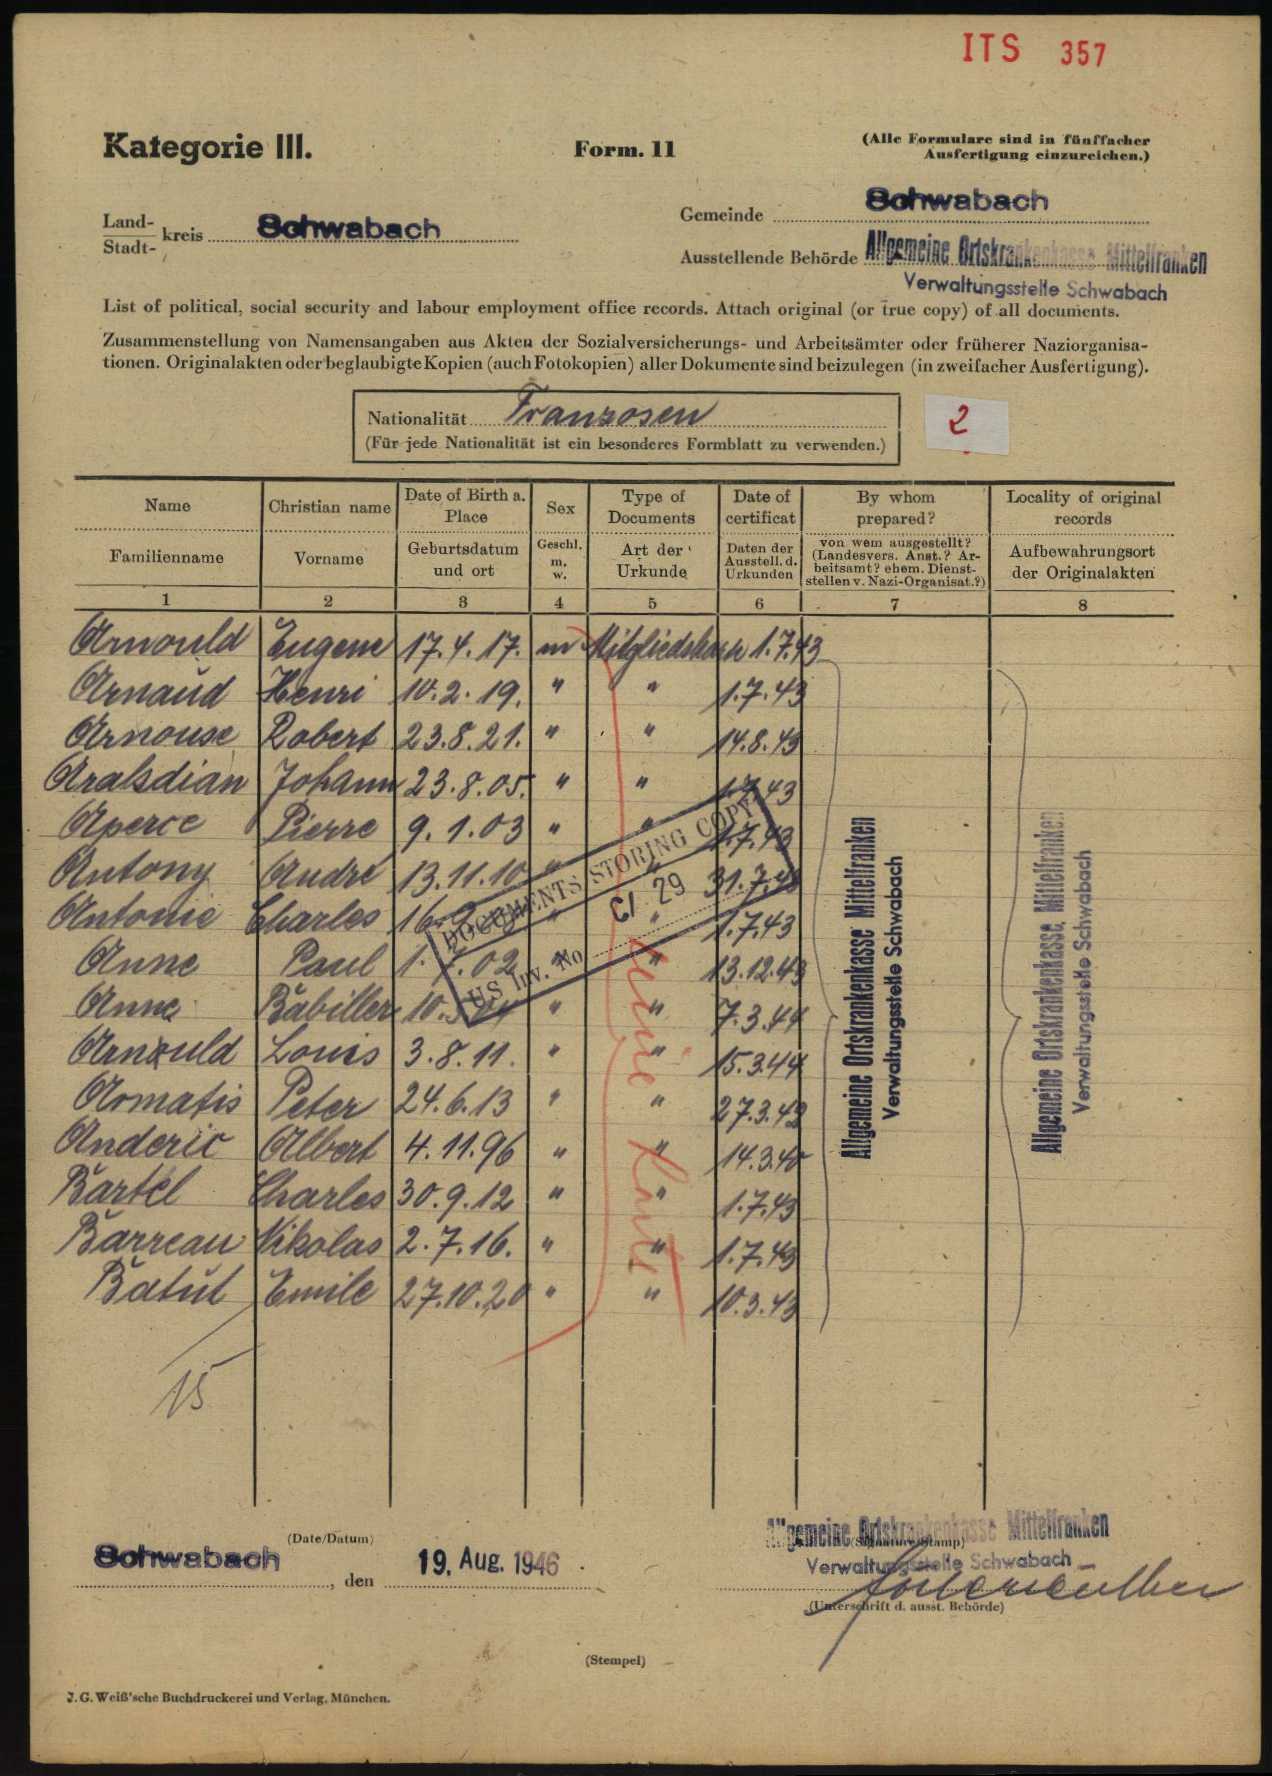 ITS 357
Kategorie III.
Form. 11
(Alle Formulare sind in fünffacher
Ausfertigung einzureichen.)
Land-
Stadt- kreis Schwabach
Gemeinde Schwabach
Ausstellende Behörde Allgemeine Ortskrankenkasse Mittelfranken
Verwaltungsstelle Schwabach
List of political, social security and labour employment office records. Attach original (or true copy) of all documents.
Zusammenstellung von Namensangaben aus Akten der Sozialversicherungs- und Arbeitsämter oder früherer Naziorganisa-
tionen. Originalakten oder beglaubigte Kopien (auch Fotokopien) aller Dokumente sind beizulegen (in zweifacher Ausfertigung).
Nationalität Franzosen
(Für jede Nationalität ist ein besonderes Formblatt zu verwenden.)
2
Name Christian name Date of Birth a. Place Sex Type of Documents Date of certificat By whom prepared? Locality of original records
Familienname Vorname Geburtsdatum und ort Geschl. m. w. Art der Urkunde Daten der Ausstell. d. Urkunden von wem ausgestellt? (Landesvers. Anst.? Ar- beitsamt? ehem. Dienst- stellen v. Nazi-Organisat.?) Aufbewahrungsort der Originalakten
1 2 3 4 5 6 7 8
Arnould Eugene 17.4.17. m 1.7.43
Arnaud Henri 10.2.19. " " 1.7.43
Arnouse Robert 23.8.21. " " 14.8.43
Johann 23.8.05. " " 1.7.43
Aperce Pierre 9.1.03 " " 1.7.43
Antony André 13.11.10 " 31.7.
Antonie Charles " 1.7.43
Anne Paul 1.7.02 " " 13.12.43
Anne Babiller " " 7.3.44
Arnould Louis 3.8.11. " " 15.3.44
Aromatis Peter 24.6.13 " " 27.3.43
Anderic Albert 4.11.96 " " 14.3.40
Bartel Charles 30.9.12 " " 1.7.43
Barreau Nikolas 2.7.16. " " 1.7.43
Batut Emile 27.10.20 " " 10.3.43
DOCUMENTS STORING COPY
C/ 29
US Inv. No
Allgemeine Ortskrankenkasse Mittelfranken
Verwaltungsstelle Schwabach
Allgemeine Ortskrankenkasse Mittelfranken
Verwaltungsstelle Schwabach
15
(Date/Datum)
Schwabach, den 19. Aug. 1946
Allgemeine Ortskrankenkasse Mittelfranken
Verwaltungsstelle Schwabach
(Unterschrift d. ausst. Behörde)
(Stempel)
J. G. Weiß'sche Buchdruckerei und Verlag, München.